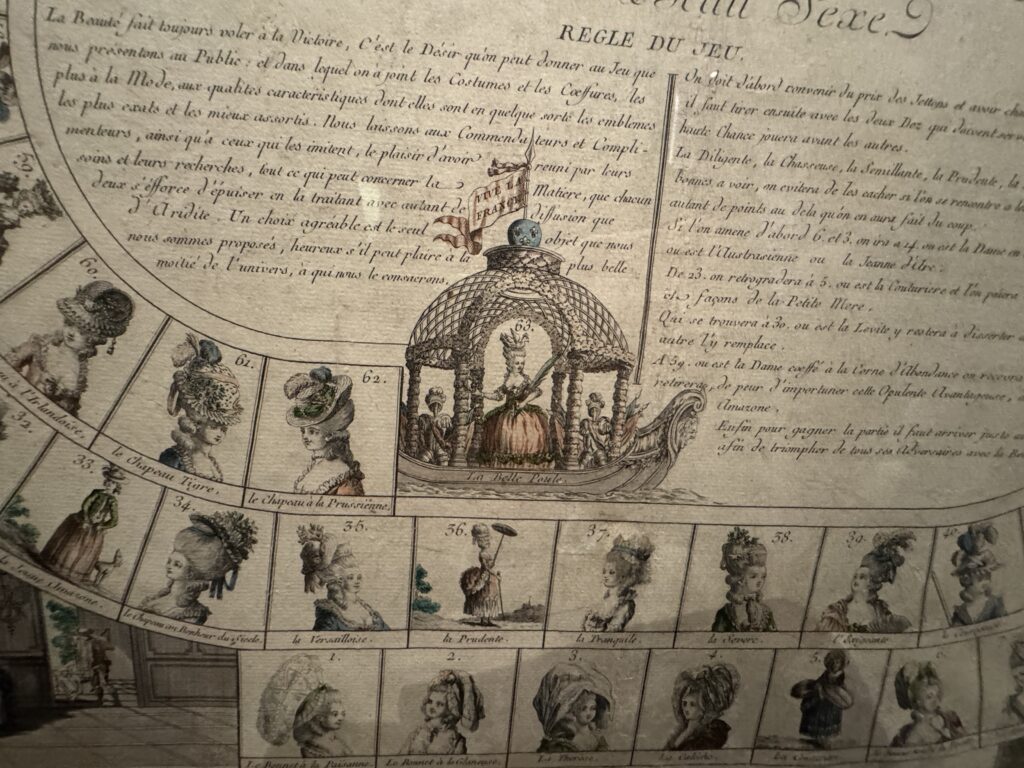 Beau Sexe
REGLE DU JEU.
La Beauté fait toujours voler à la Victoire, C'est le Désir qu'on peut donner au Jeu que
nous présentons au Public : et dans lequel on a joint les Costumes et les Cœffures, les
plus à la Mode, aux qualités caracteristiques dont elles sont en quelque sorte les emblemes
les plus exats et les mieux assortis. Nous laissons aux Commendateurs et Compli-
menteurs, ainsi qu'à ceux qui les imitent, le plaisir d'avoir reuni par leurs
soins et leurs recherches, tout ce qui peut concerner la Matière, que chacun
deux s'éfforce d'épuiser en la traitant avec autant de diffusion que
d'Aridite. Un choix agréable est le seul objet que nous
nous sommes proposés, heureux s'il peut plaire à la plus belle
moitié de l'univers, à qui nous le consacrons.
On doit d'abord convenir du prix des Jettons et avoir
il faut tirer ensuite avec les deux Dez qui doivent
haute Chance jouera avant les autres.
La Diligente, la Chasseuse, la Semillante, la Prudente, la
bonnes a voir, on evitera de les cacher si l'on se rencontre a
autant de points au dela qu'on en aura fait du coup.
Si l'on amene d'abord 6 et 3, on ira a 14, ou est la Dame en
ou est l'Austrasienne ou la Jeanne d'Arc.
De 23, on retrogradera à 5, ou est la Couturiere et l'on paiera
et façons de la Petite Mere.
Qui se trouvera à 30, ou est la Lévite y restera à disserter
autre l'y remplace.
A 39, ou est la Dame cœffé à la Corne d'Abondance on recevra
retirera, de peur d'importuner cette Opulente Avantageuse,
Amazone.
Enfin pour gagner la partie il faut arriver juste
afin de triompher de tous ses Adversaires avec la
VIVE LA
FRANCE
63.
La Belle Poule.
60.
à l'Irlandoise.
61.
le Chapeau Tigre.
62.
le Chapeau à la Prussiënne.
32.
33.
la Jeune Amazone.
34.
le Chapeau au Bonheur du Siecle.
35.
la Versailloise.
36.
la Prudente.
37.
la Tranquile.
38.
la Severe.
39.
l'Exigeante
40.
1.
Le Bonnet à la Paisanne
2.
Le Bonnet à la Glaneuse.
3.
La Thérèse.
4.
La Caleche.
5.
La Couturiere
6.